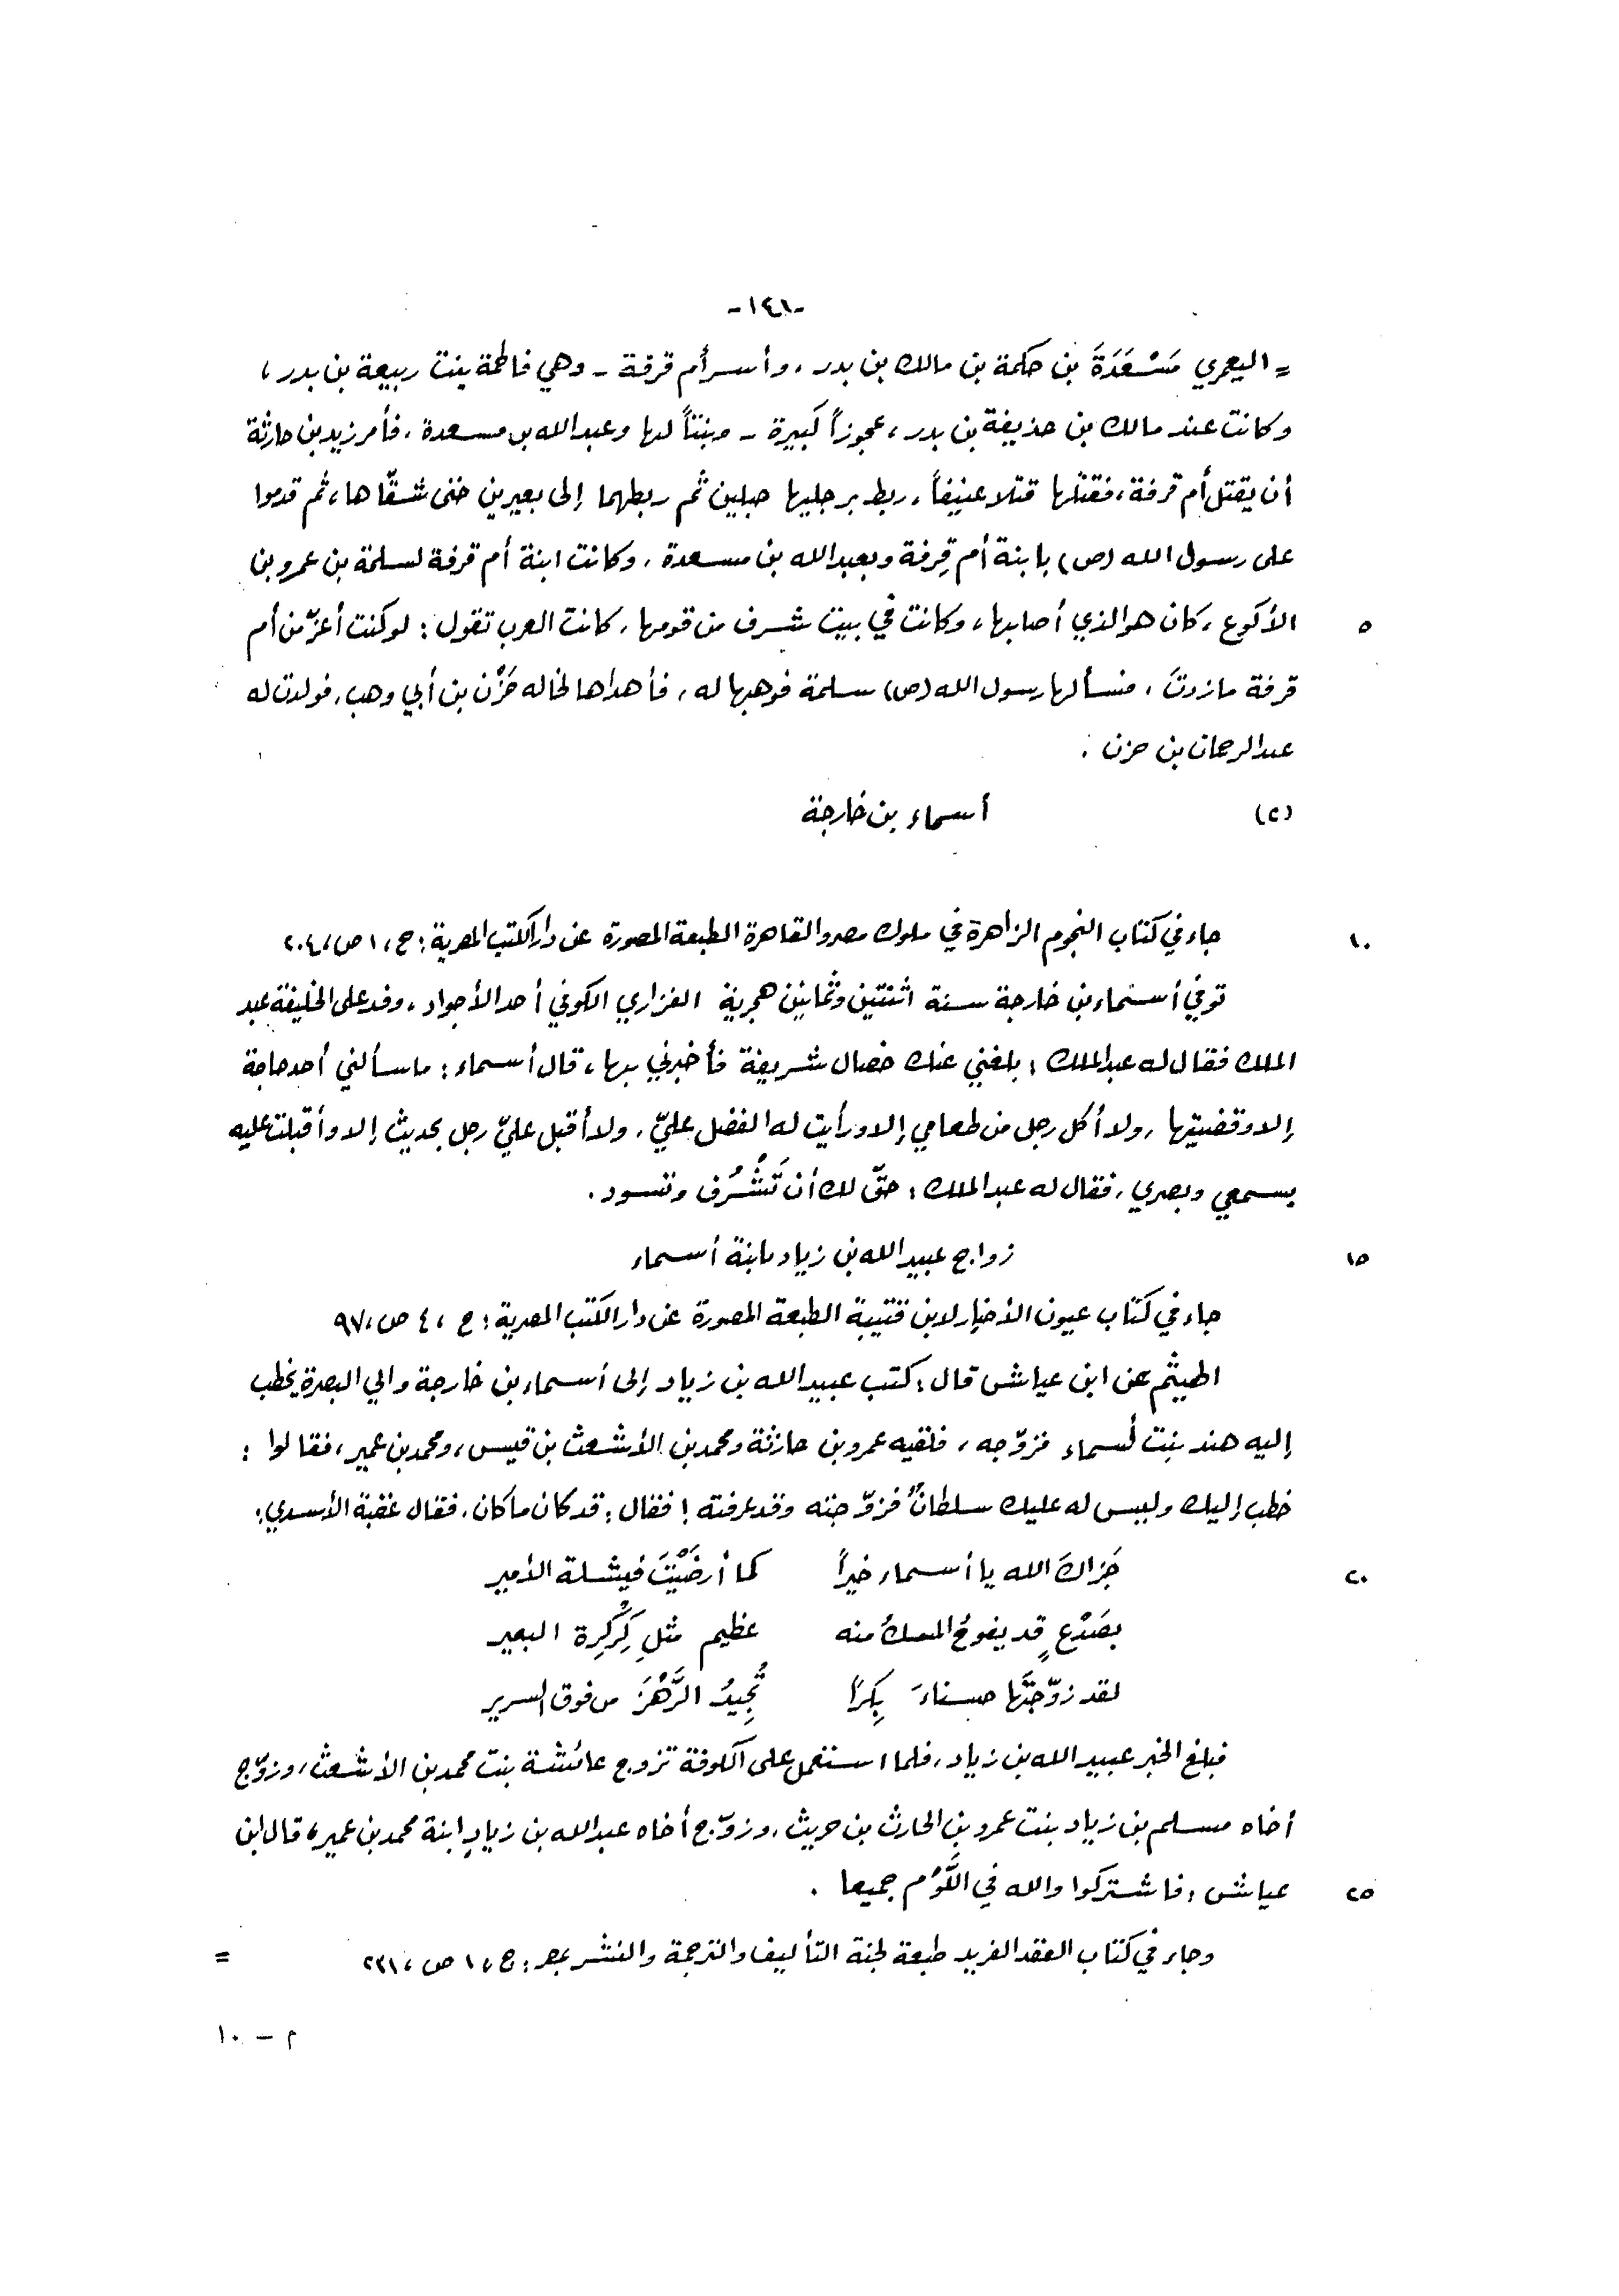 -١٤١-
= اليعمري مَسْعَدَةَ بن حكمة بن مالك بن بدر، وأسر أم قرفة - وهي فاطمة بنت ربيعة بن بدر،
وكانت عند مالك بن حذيفة بن بدر، عجوزاً كبيرة - وبنتاً لها وعبدالله بن مسعدة، فأمر زيد بن حارثة
أن يقتل أم قرفة، فقتلها قتلا عنيفاً، ربط برجليها حبلين ثم ربطهما إلى بعيرين حتى شقّاها، ثم قدموا
على رسول الله (ص) بابنة أم قِرفة وبعبدالله بن مسعدة، وكانت ابنة أم قرفة لسلمة بن عمرو بن
٥ الأكوع، كان هو الذي أصابها، وكانت في بيت شرف من قومها، كانت العرب تقول: لو كنت أعزّ من أم
قرفة مازدتَ، فسألها رسول الله (ص) سلمة فوهبها له، فأهداها لخاله حَزْن بن أبي وهب، فولدت له
عبدالرحمان بن حزن.
(٢) أسماء بن خارجة
١٠ جاء في كتاب النجوم الزاهرة في ملوك مصر والقاهرة الطبعة المصورة عن دار الكتب المصرية: ج، ١ ص، ٢٠٤
توفي أسماء بن خارجة سنة اثنتين وثمانين هجرية الفزاري الكوفي أحد الأجواد، وفد على الخليفة عبد
الملك فقال له عبدالملك: بلغني عنك خصال شريفة فأخبرني بها، قال أسماء: ماسألني أحد حاجة
إلا وقضيتها، ولا أكل رجل من طعامي إلا ورأيت له الفضل عليّ، ولا أقبل عليّ رجل بحديث إلا وأقبلت عليه
بسمعي وبصري، فقال له عبد الملك: حقّ لك أن تَشْرُف وتسود.
١٥ زواج عبيدالله بن زياد بابنة أسماء
جاء في كتاب عيون الأخبار لابن قتيبة الطبعة المصورة عن دار الكتب المصرية: ج، ٤ ص، ٩٧
الهيثم عن ابن عياش قال: كتب عبيدالله بن زياد إلى أسماء بن خارجة والي البصرة يخطب
إليه هند بنت أسماء فزوّجه، فلقيه عمرو بن حارثة ومحمد بن الأشعث بن قيس، ومحمد بن عمير، فقالوا:
خطب إليك وليس له عليك سلطانٌ فزوّجته وقد عرفته! فقال: قد كان ماكان، فقال عقبة الأسدي:
٢٠ جَزاكَ الله يا أسماء خيراً كما أرضَيْتَ فيشلة الأمير
بصَدْعٍ قد يفوحُ المسكُ منه عظيم مثلِ كِرْكِرة البعير
لقد زوّجتَها حسناءَ بِكراً تُجِيدُ الرَّهْزَ من فوق السرير
فبلغ الخبر عبيد الله بن زياد، فلما استعمل على الكوفة تزوج عائشة بنت محمد بن الأشعث، وزوّج
أخاه مسلم بن زياد بنت عمرو بن الحارث بن حريث، وزوّج أخاه عبدالله بن زيادٍ ابنة محمد بن عمير، قال ابن
٢٥ عياش: فاشتركوا والله في اللَّوْم جميعا.
وجاء في كتاب العقد الفريد طبعة لجنة التأليف والترجمة والنشر بمصر: ج، ١ ص، ٢٣١ =
م - ١٠